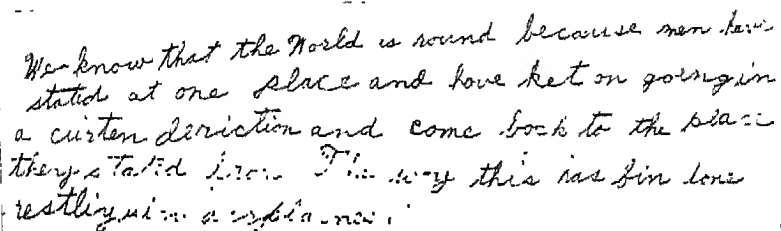 We know that the World is round because men have
stated at one place and have ket on going in
a curten deriction and come back to the place
they statid from The way this has bin done
restliy